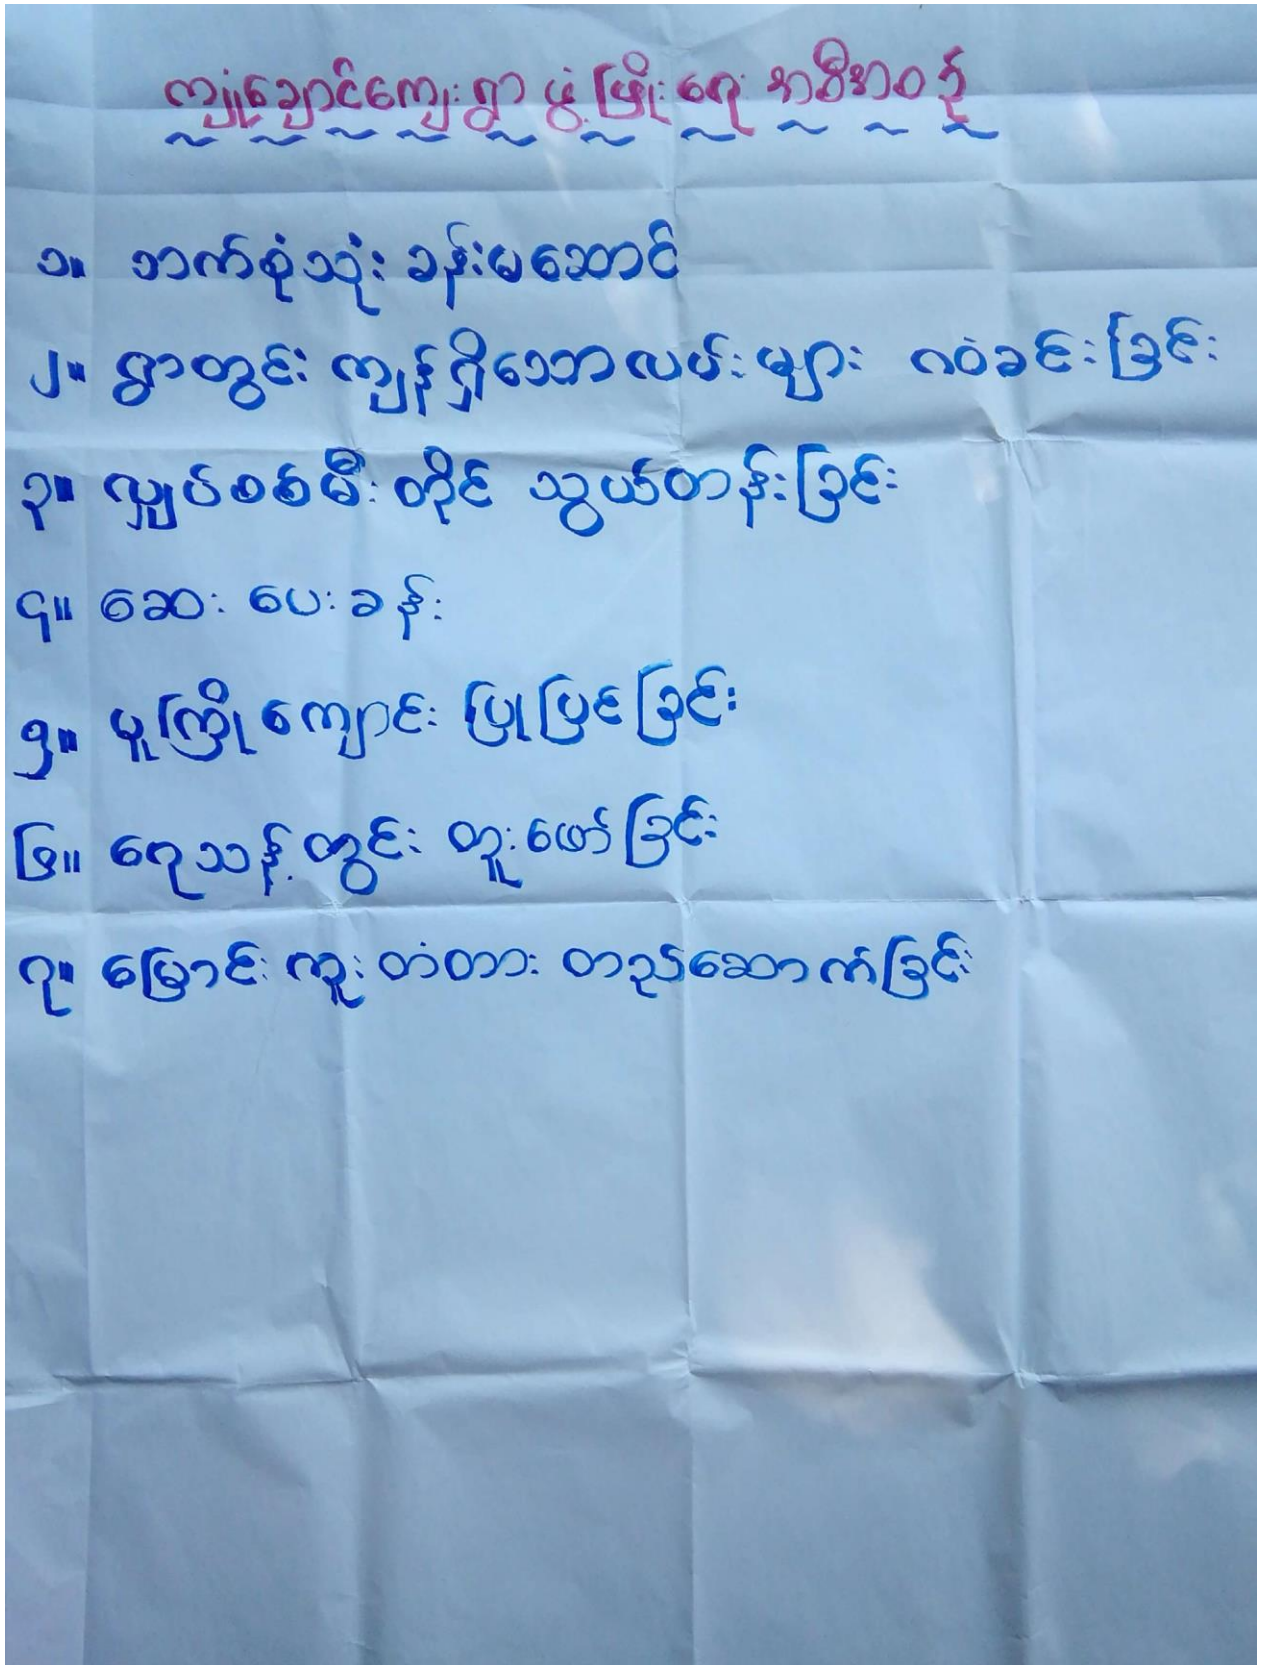 ကျုံချောင်ကျေးရွာ ဖွံ့ဖြိုးရေး အစီအစဉ်
၁။ ဘက်စုံသုံး ခန်းမဆောင်
၂။ ရွာတွင်း ကျန်ရှိသောလမ်းများ ဂဝံခင်းခြင်း
၃။ လျှပ်စစ်မီးတိုင် သွယ်တန်းခြင်း
၄။ ဆေးပေးခန်း
၅။ မူကြိုကျောင်း ပြုပြင်ခြင်း
၆။ ရေသန့်တွင်း တူးဖော်ခြင်း
၇။ မြောင်းကူးတံတား တည်ဆောက်ခြင်း